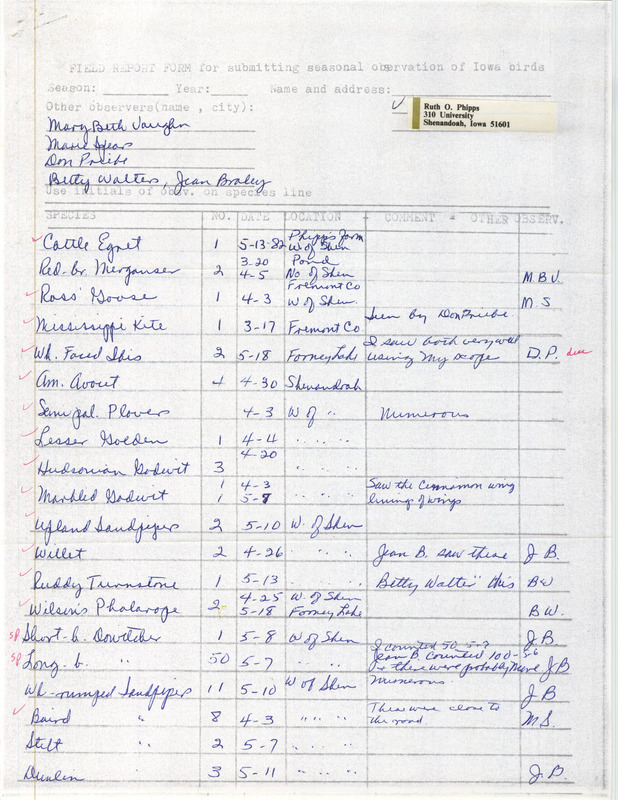 FIELD REPORT FORM for submitting seasonal observation of Iowa birds
Season: Year: Name and address:
Ruth O. Phipps
310 University
Shenandoah, Iowa 51601
Other observers(name , city):
Mary Beth Vaughn
Marie Spears
Don Priebe
Betty Walters, Jean Braley
Use initials of obsv. on species line
SPECIES NO. DATE LOCATION COMMENT OTHER OBSERV.
Cattle Egret 1 5-13-82 Phipps Farm W of Shen
Red-br. Merganser 2 3-20 4-5 Pond No. of Shen M.B.V.
Ross' Goose 1 4-3 Fremont Co W of Shen. M.S.
Mississippi Kite 1 3-17 Fremont Co Seen by Don Priebe.
Wh. Faced Ibis 2 5-18 Forney Lake I saw both very well using my scope D.P.
Am. Avocet 4 4-30 Shenandoah
Semi pal. Plovers 4-3 W of " Numerous
Lesser Golden 1 4-4 " "
Hudsonian Godwit 3 4-20 " "
Marbled Godwit 1 1 4-3 5-7 " " Saw the cinnamon wing linings of wings
Upland Sandpipers 2 5-10 W. of Shen
Willet 2 4-26 " " Jean B. saw these J B.
Ruddy Turnstone 1 5-13 " " Betty Walter " this B W
Wilson's Phalarope 2 4-25 5-18 W. of Shen Forney Lake B W.
sp Short-b. Dowitcher 1 5-8 W of Shen J.B.
sp Long-b. " 50 5-7 " " I counted 50 5-7 Jean B. counted 100 - 5-6 & there were probably more J B
Wh-rumped Sandpipers 11 5-10 W of Shen Numerous J.B
Baird " 8 4-3 " " These were close to the road. M S.
Stilt " 2 5-7 " "
Dunlin 3 5-11 " " J.B.